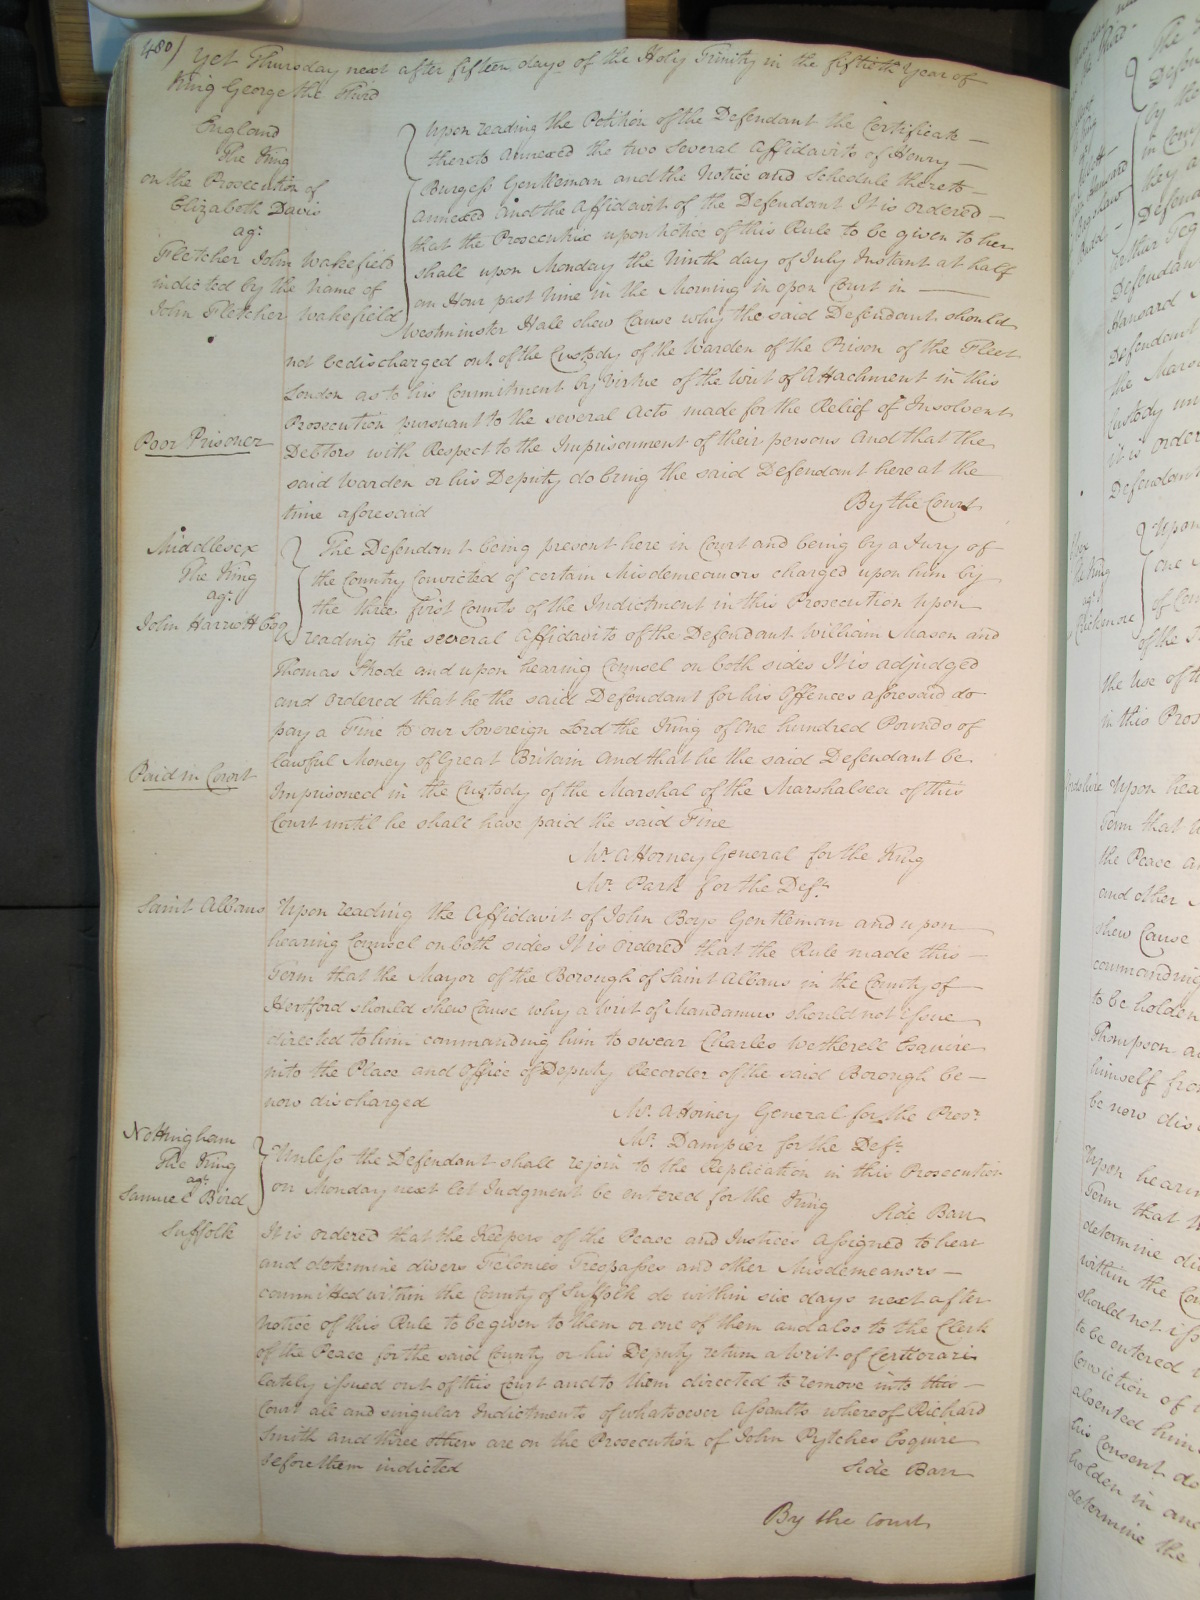 480/ Yet Thursday next after fifteen days of the Holy Trinity in the fiftieth Year of
King George the Third
England
The King
on the Prosecution of
Elizabeth Davis
agt
Fletcher John Wakefield
indicted by the Name of
John Fletcher Wakefield
Upon reading the Petition of the Defendant the Certificate —
thereto annexed the two several Affidavits of Henry —
Burgess Gentleman and the Notice and Schedule thereto —
annexed and the Affidavit of the Defendant It is ordered —
that the Prosecutrix upon notice of this Rule to be given to her
shall upon Monday the Ninth day of July Instant at half
an Hour past Nine in the Morning in open Court in —
Westminster Hall shew Cause why the said Defendant should
not be discharged out of the Custody of the Warden of the Prison of the Fleet
London as to his Commitment by Virtue of the Writ of Attachment in this
Prosecution pursuant to the several Acts made for the Relief of Insolvent
Poor Prisoner
Debtors with Respect to the Imprisonment of their persons And that the
said Warden or his Deputy do bring the said Defendant here at the
time aforesaid
By the Court
Middlesex
The King
agt
John Harriott Esq
The Defendant being present here in Court and being by a Jury of
the Country Convicted of certain Misdemeanors charged upon him by
the three first Counts of the Indictment in this Prosecution Upon
reading the several Affidavits of the Defendant William Mason and
Thomas Rhode and upon hearing Counsel on both sides It is adjudged
and ordered that he the said Defendant for his Offences aforesaid do
pay a Fine to our Sovereign Lord the King of One hundred Pounds of
lawful Money of Great Britain And that he the said Defendant be
Paid in Court
Imprisoned in the Custody of the Marshal of the Marshalsea of this
Court until he shall have paid the said Fine
Mr. Attorney General for the King
Mr. Park for the Deft.
Saint Albans
Upon reading the Affidavit of John Boys Gentleman and upon
hearing Counsel on both sides It is ordered that the Rule made this —
Term that the Mayor of the Borough of Saint Albans in the County of
Hertford should shew Cause why a Writ of Mandamus should not issue
directed to him commanding him to swear Charles Wetherell Esquire
into the Place and Office of Deputy Recorder of the said Borough be —
now discharged
Mr. Attorney General for the Prosr.
Mr. Dampier for the Deft.
Nottingham
The King
agt.
Samuel Bird
Unless the Defendant shall rejoin to the Replication in this Prosecution
on Monday next let Judgment be entered for the King
Side Barr
Suffolk
It is ordered that the Keepers of the Peace and Justices Assigned to hear
and determine divers Felonies Trespasses and other Misdemeanors —
committed within the County of Suffolk do within six days next after
Notice of this Rule to be given to them or one of them and also to the Clerk
of the Peace for the said County or his Deputy return a Writ of Certiorari
lately issued out of this Court and to them directed to remove into this —
Court all and singular Indictments of whatsoever Assaults whereof Richard
Smith and three others are on the Prosecution of John Pytches Esquire
before them indicted
Side Barr
By the Court